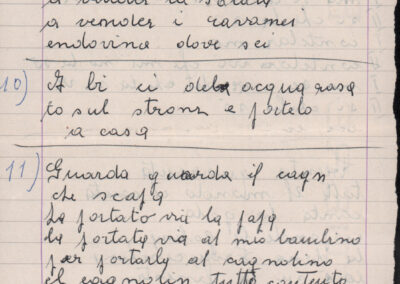 a vender i caramei
endovina dove sei
10) A bi ci dela acqua rasa
to sul stronz e portelo
a casa
11) Guarda guarda il cagn
che scapa
La portato via la papa
la portata via al mio bambino
per portarla al cagnolino
el cagnolin tutto contento